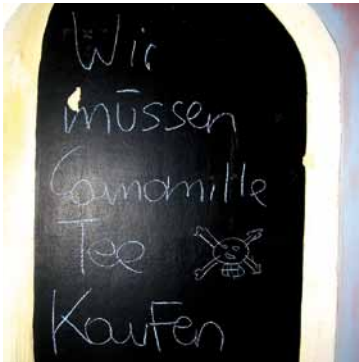 Wir
müssen
Camamille
Tee
Kaufen